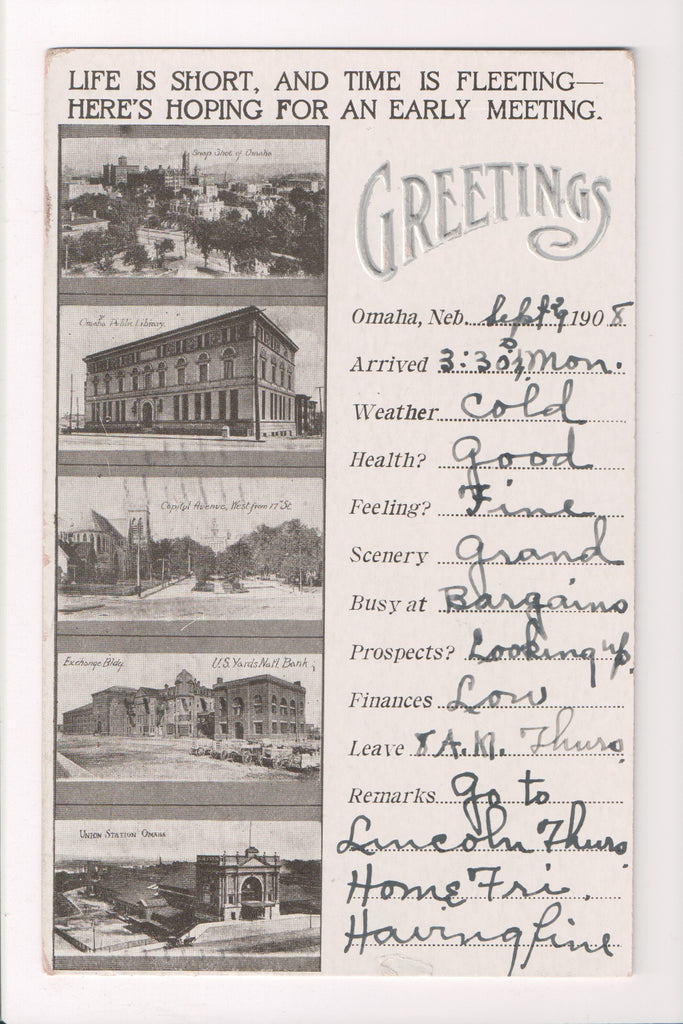 LIFE IS SHORT, AND TIME IS FLEETING—
HERE'S HOPING FOR AN EARLY MEETING.
Snap Shot of Omaha
Omaha Public Library.
Capitol Avenue, West from 17th St.
Exchange Bldg. U.S. Yards Natl. Bank;
UNION STATION OMAHA
GREETINGS
Omaha, Neb. Sept 29 1908
Arrived 3:30 P.M. Mon.
Weather Cold
Health? Good
Feeling? Fine
Scenery Grand
Busy at Bargains
Prospects? Looking up.
Finances Low
Leave 8 A.M. Thurs.
Remarks Go to
Lincoln Thurs.
Home Fri.
Having fine